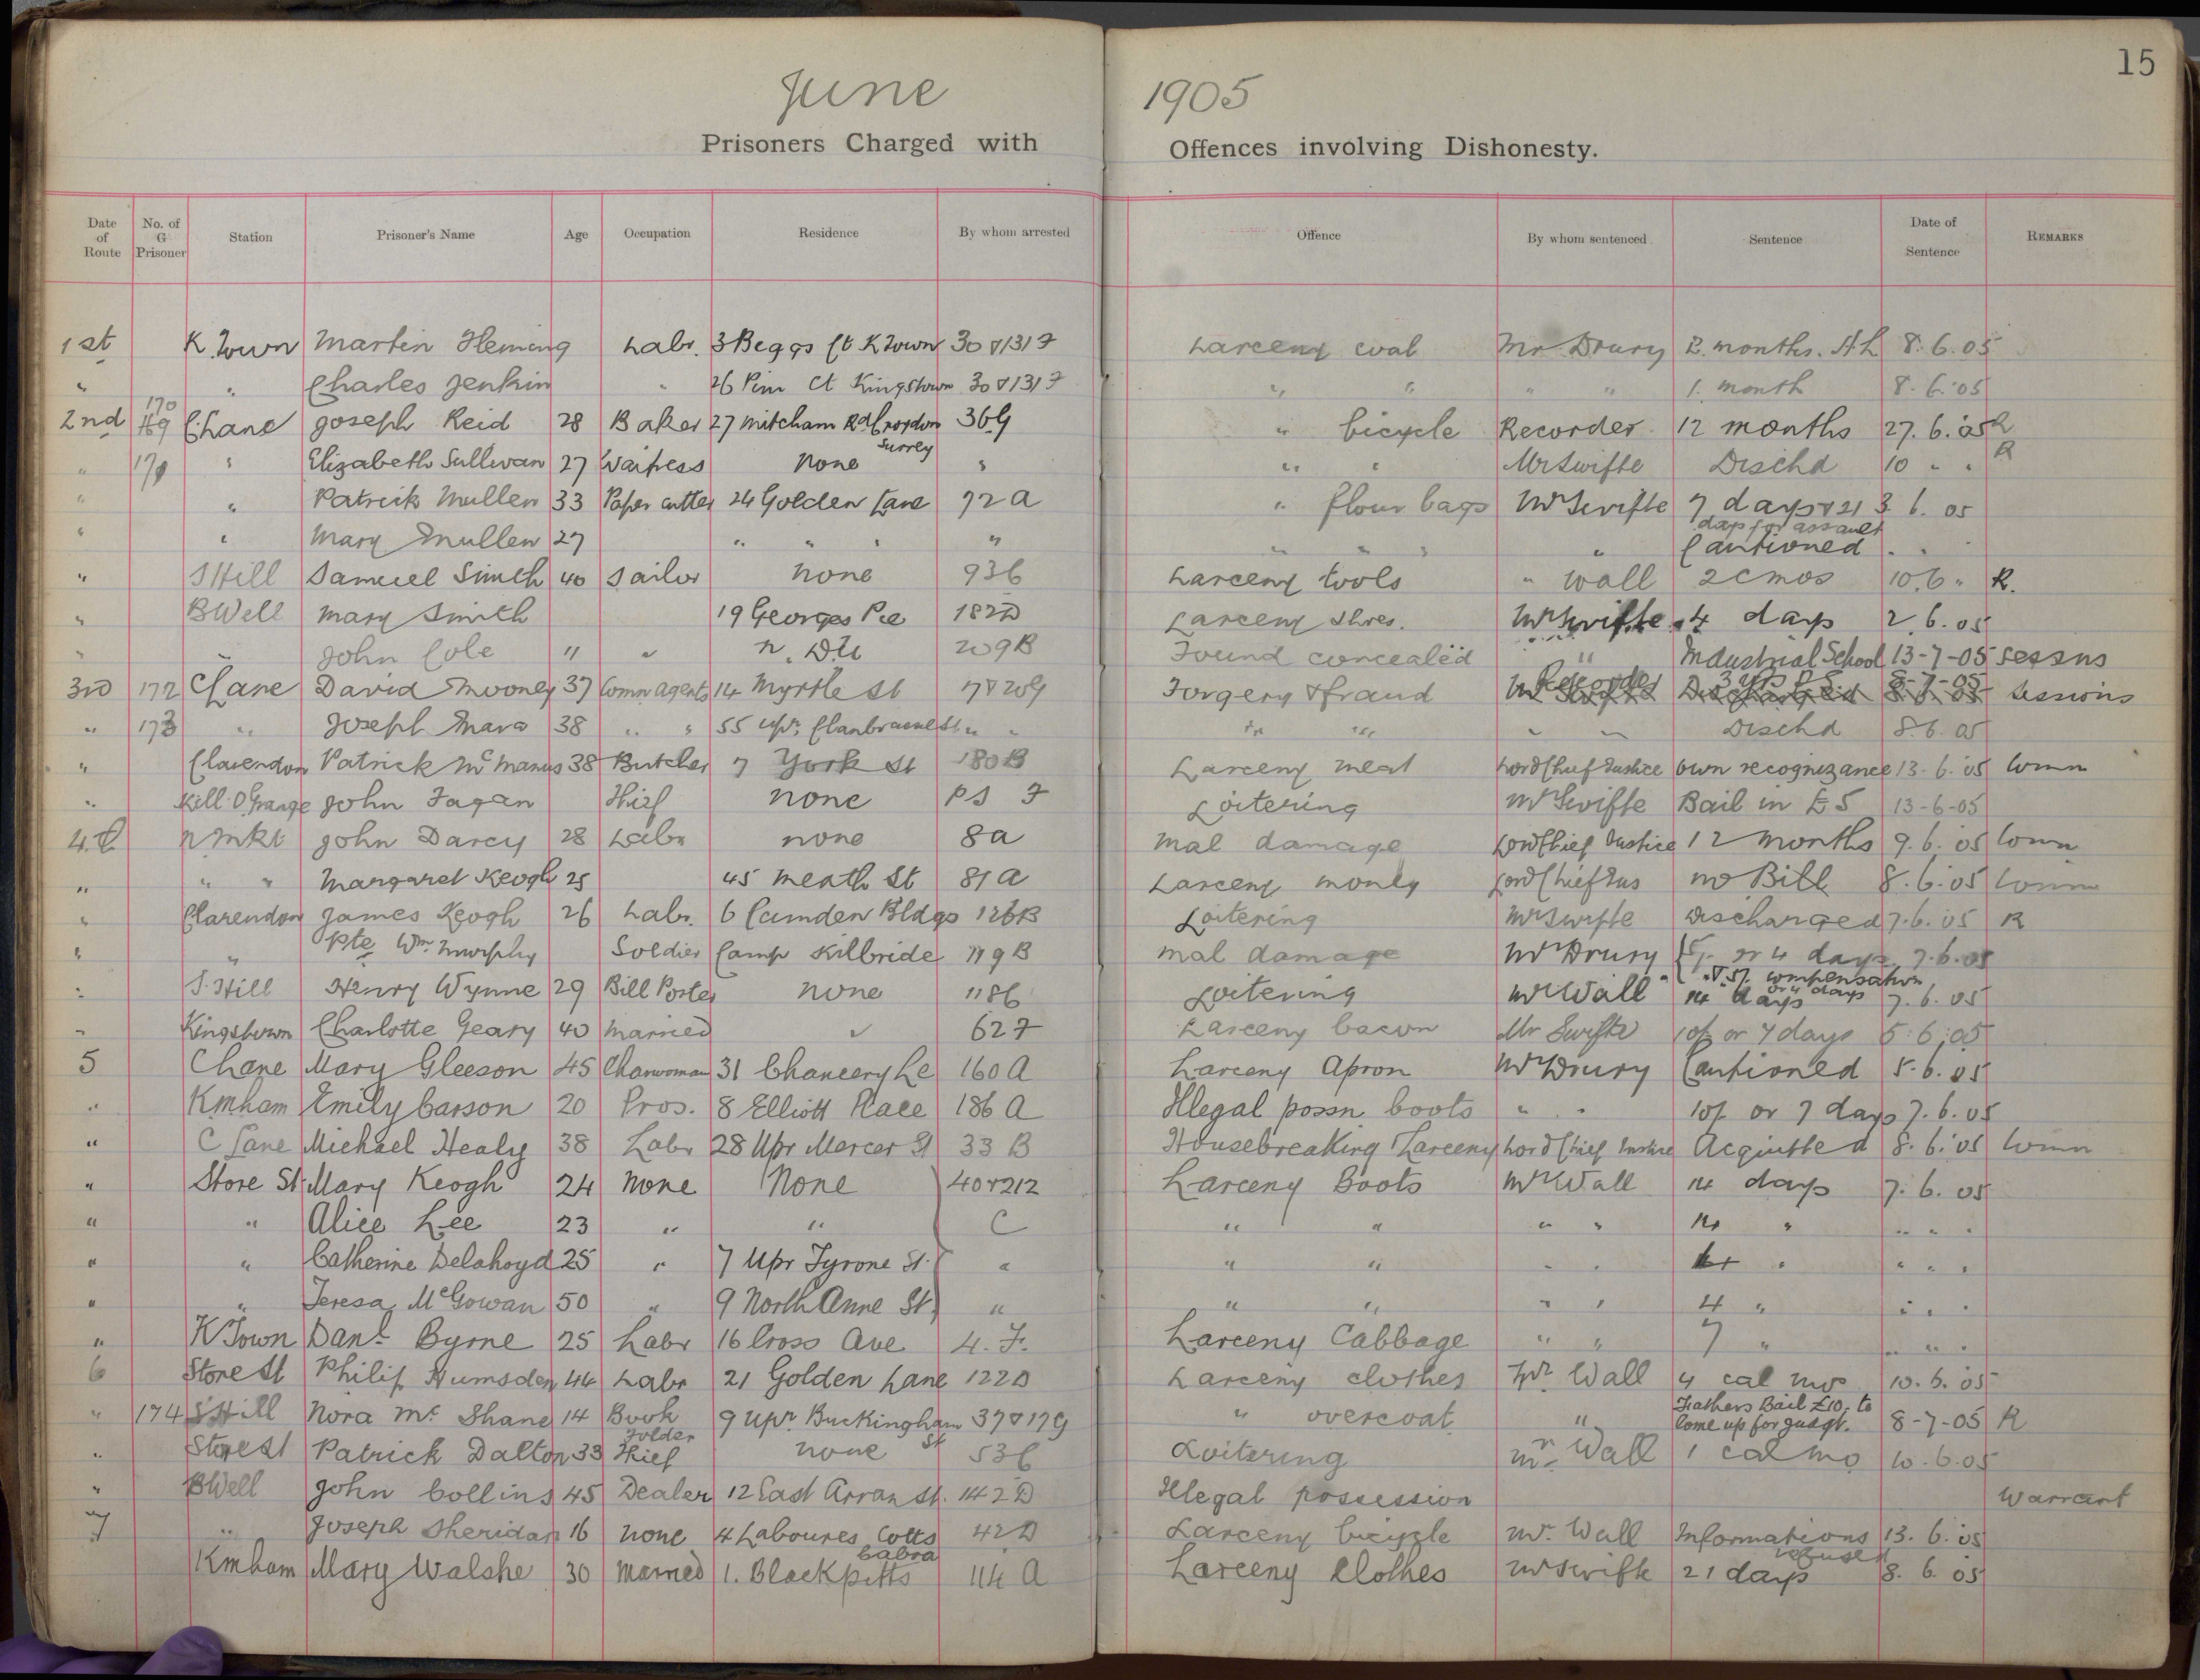 15
June 1905
Prisoners Charged with Offences involving Dishonesty.
Date of Route No. of G Prisoner Station Prisoner's Name Age Occupation Residence By whom arrested Offence By whom sentenced Sentence Date of Sentence REMARKS
1st K.Town Martin Fleming Labr. 3 Beggs Ct K Town 30 & 131 F Larceny coal Mr Drury 2. months. H.L 8.6.05
" " Charles Jenkin " 26 Pim Ct Kingstown 30 & 131 F " " " " 1. month 8.6.05
2nd 170 C Lane Joseph Reid 28 Baker 27 Mitcham Rd Croydon Surrey 36G " bicycle Recorder 12 months 27.6.05 R
" 171 " Elizabeth Sullivan 27 Waitress None " " " Mr Swifte Dischd 10 " " R
" " Patrick Mullen 33 Paper cutter 24 Golden Lane 72 A " flour bags Mr Swifte 7 days & 21 days for assault 3.6.05
" " Mary Mullen 27 " " " " " " " " Cautioned " "
" S Hill Samuel Smith 40 Sailor None 93C Larceny tools " Wall 2 C mos 10.6 " R.
" BWell Mary Smith 19 Georges Pce 182D Larceny Shoes. Mr Swifte 4 days 2.6.05
" " John Cole 11 " 209B Found concealed " Industrial School 13-7-05 Sessns
3rd 172 C Lane David Mooney 37 Comn Agents 14 Myrtle St 7 & 20G Forgery & fraud Recorder 3 yrs P S 8-7-05 Sessions
" 173 " Joseph Mara 38 " " 55 Upr. Clanbrassil St " " " " " " Dischd 8.6.05
" Clarendon Patrick McManus 38 Butcher 7 York St 180B Larceny meat Lord Chief Justice own recognizance 13.6.05 Comn
" Kill O'Grange John Fagan Thief None PS F Loitering Mr Swifte Bail in £5 13-6-05
4th N Mkt John Darcy 28 Labr none 8a Mal damage Lord Chief Justice 12 months 9.6.05 Comn
" " " Margaret Keogh 25 45 Meath St 81a Larceny money Lord Chief Jus no Bill 8.6.05 Comn
" Clarendon James Keogh 26 Labr. 6 Camden Bldgs 126B Loitering Mr Swifte Discharged 7.6.05 R
" " Pte Wm Murphy Soldier Camp Kilbride 119B Mal damage Mr Drury 5/- or 4 days & 5/- compensation or 4 days 7.6.05
" S. Hill Henry Wynne 29 Bill Poster None 118C Loitering Mr Wall 14 days 7.6.05
" Kingstown Charlotte Geary 40 Married " 62F Larceny bacon Mr Swifte 10/- or 7 days 5.6.05
5 C Lane Mary Gleeson 45 Charwoman 31 Chancery Le 160 A Larceny Apron Mr Drury Cautioned 5.6.05
" Kmham Emily Carson 20 Pros. 8 Elliott Place 186 A Illegal possn boots " " 10/- or 7 days 7.6.05
" C Lane Michael Healy 38 Labr 28 Upr Mercer St 33 B Housebreaking & Larceny Lord Chief Justice Acquitted 8.6.05 Comn
" Store St. Mary Keogh 24 None None 40 & 212 Larceny Boots Mr Wall 14 days 7.6.05
" " Alice Lee 23 " " C " " " " 14 " " " "
" " Catherine Delahoyd 25 " 7 Upr Tyrone St. " " " " " 14 " " " "
" " Teresa McGowan 50 " 9 North Anne St. " " " " " 4 " " " "
" K Town Danl. Byrne 25 Labr 16 Cross Ave 4. F. Larceny Cabbage " " 7 " " " "
6 Store St Philip Humsden 44 Labr 21 Golden Lane 122D Larceny clothes Mr Wall 4 cal mos 10.6.05
" 174 S Hill Nora McShane 14 Book Folder 9 Upr. Buckingham St 37 & 17G " overcoat " Fathers Bail £10,- to come up for judgt. 8-7-05 R
" Store St Patrick Dalton 33 Thief None 53C Loitering Mr. Wall 1 cal mo 10.6.05
" BWell John Collins 45 Dealer 12 East Arran St. 142D Illegal possession Warrant
7 " Joseph Sheridan 16 none 4 Laboures Cotts Cabra 42D Larceny bicycle Mr. Wall Informations refused 13.6.05
Kmham Mary Walshe 30 Married 1. Blackpitts 114 A Larceny Clothes Mr Swifte 21 days 8.6.05